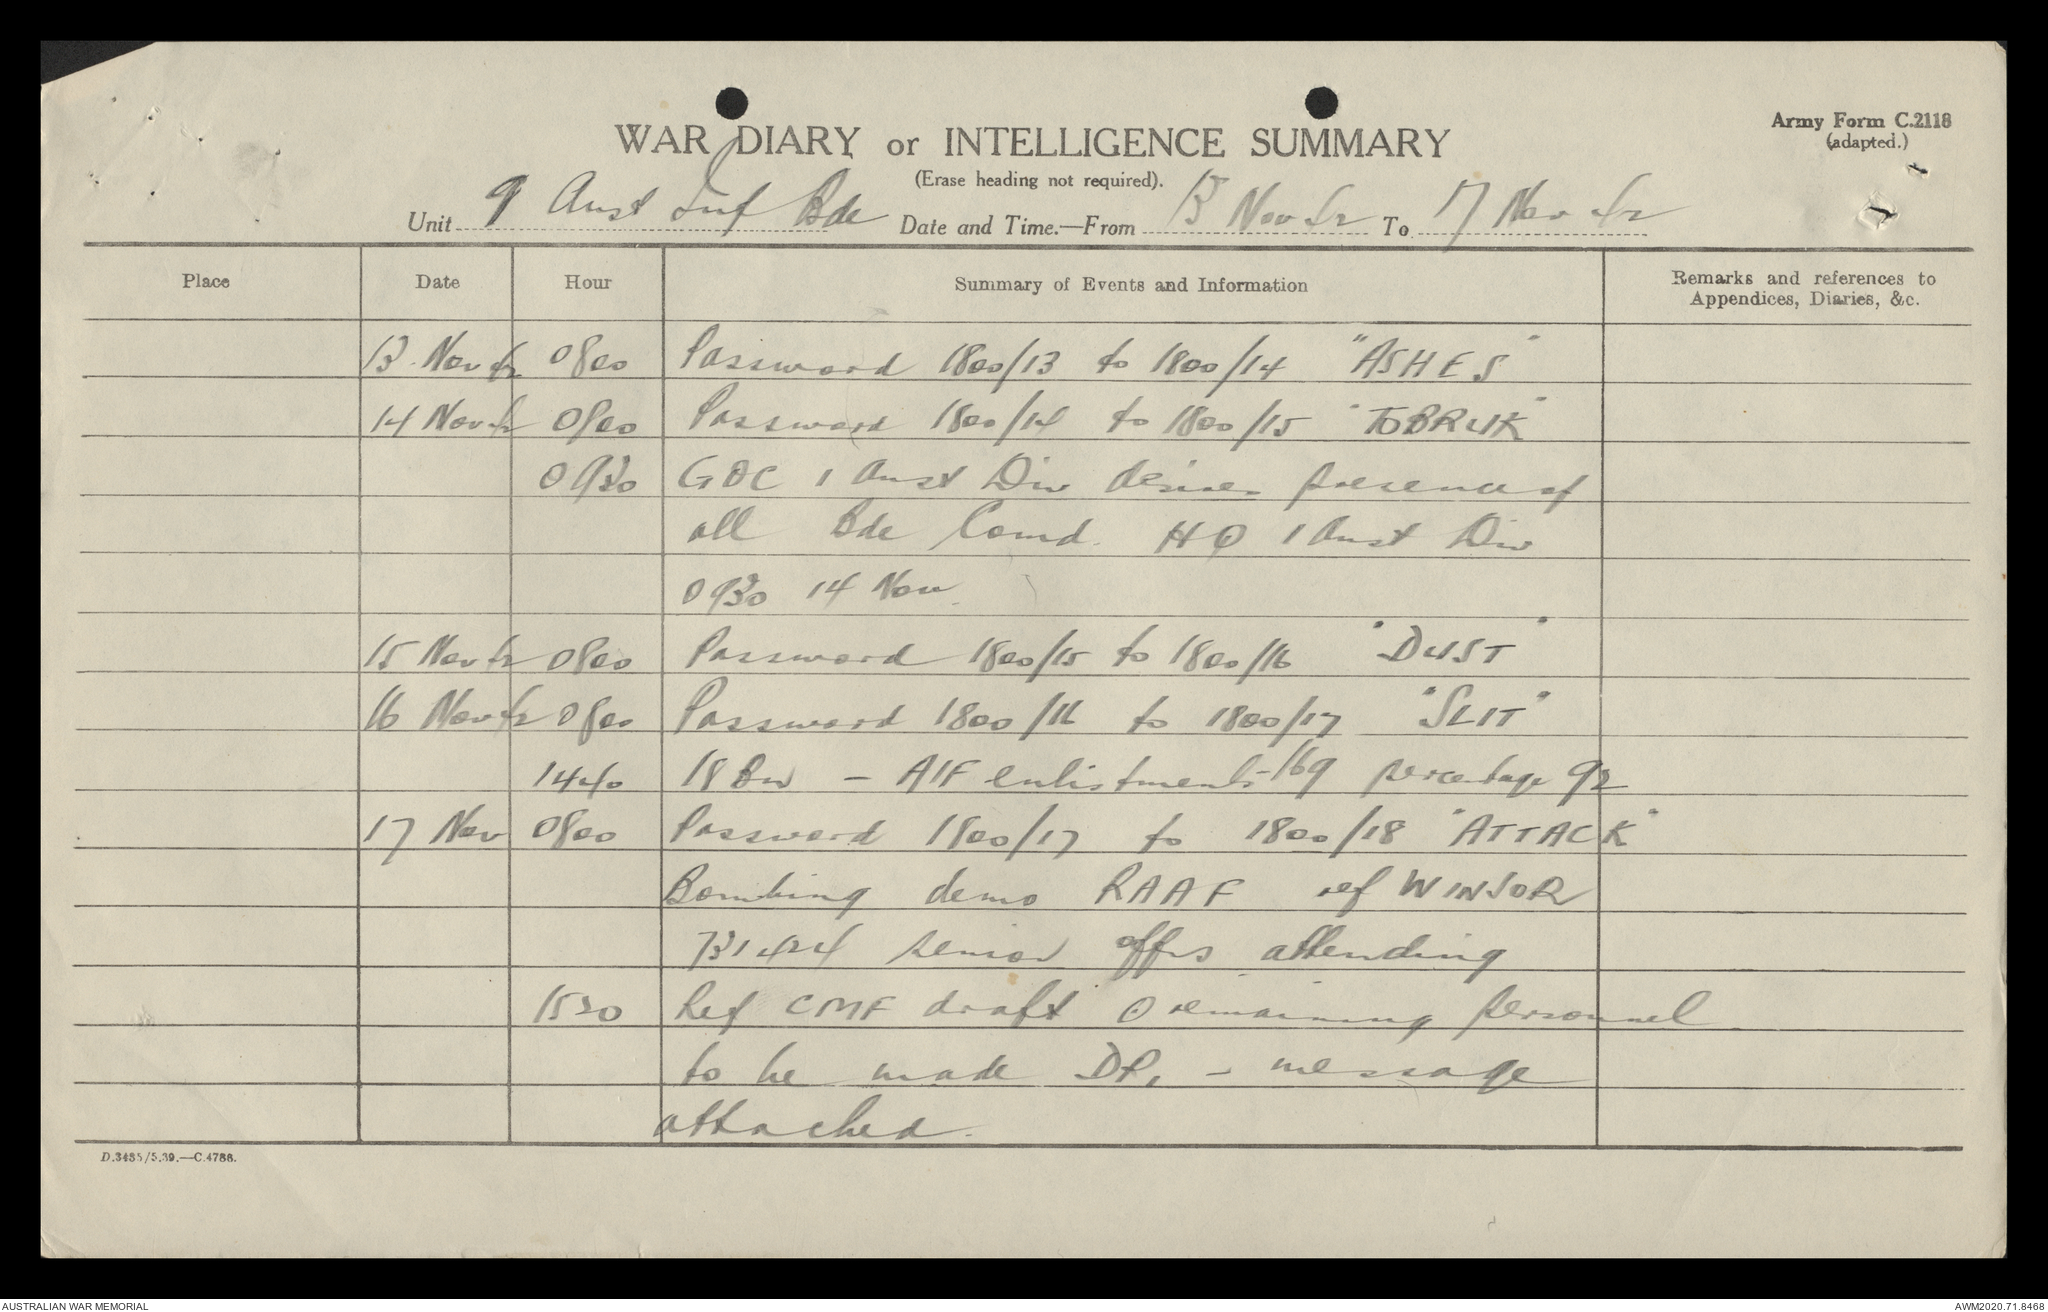 Army Form C.2118
(adapted.)
WAR DIARY or INTELLIGENCE SUMMARY
(Erase heading not required).
Unit 9 Aust Inf Bde Date and Time.—From 13 Nov 42 To 17 Nov 42
Place Date Hour Summary of Events and Information Remarks and references to
Appendices, Diaries, &c.
13 Nov 42 0800 Password 1800/13 to 1800/14 "ASHES"
14 Nov 42 0800 Password 1800/14 to 1800/15 "TOBRUK"
0930 GOC 1 Aust Div desires presence of
all Bde Comd. HQ 1 Aust Div
0930 14 Nov.
15 Nov 42 0800 Password 1800/15 to 1800/16 "DUST"
16 Nov 42 0800 Password 1800/16 to 1800/17 "SLIT"
1440 18 Bn - AIF enlistments - 169 percentage 92
17 Nov 0800 Password 1800/17 to 1800/18 "ATTACK"
Bombing demo RAAF ref WINSOR
731424 senior offrs attending
1530 Ref CMF draft remaining personnel
to be made DP, - message
attached.
D.3485/5.39.—C.4786.
AUSTRALIAN WAR MEMORIAL AWM2020.71.8468